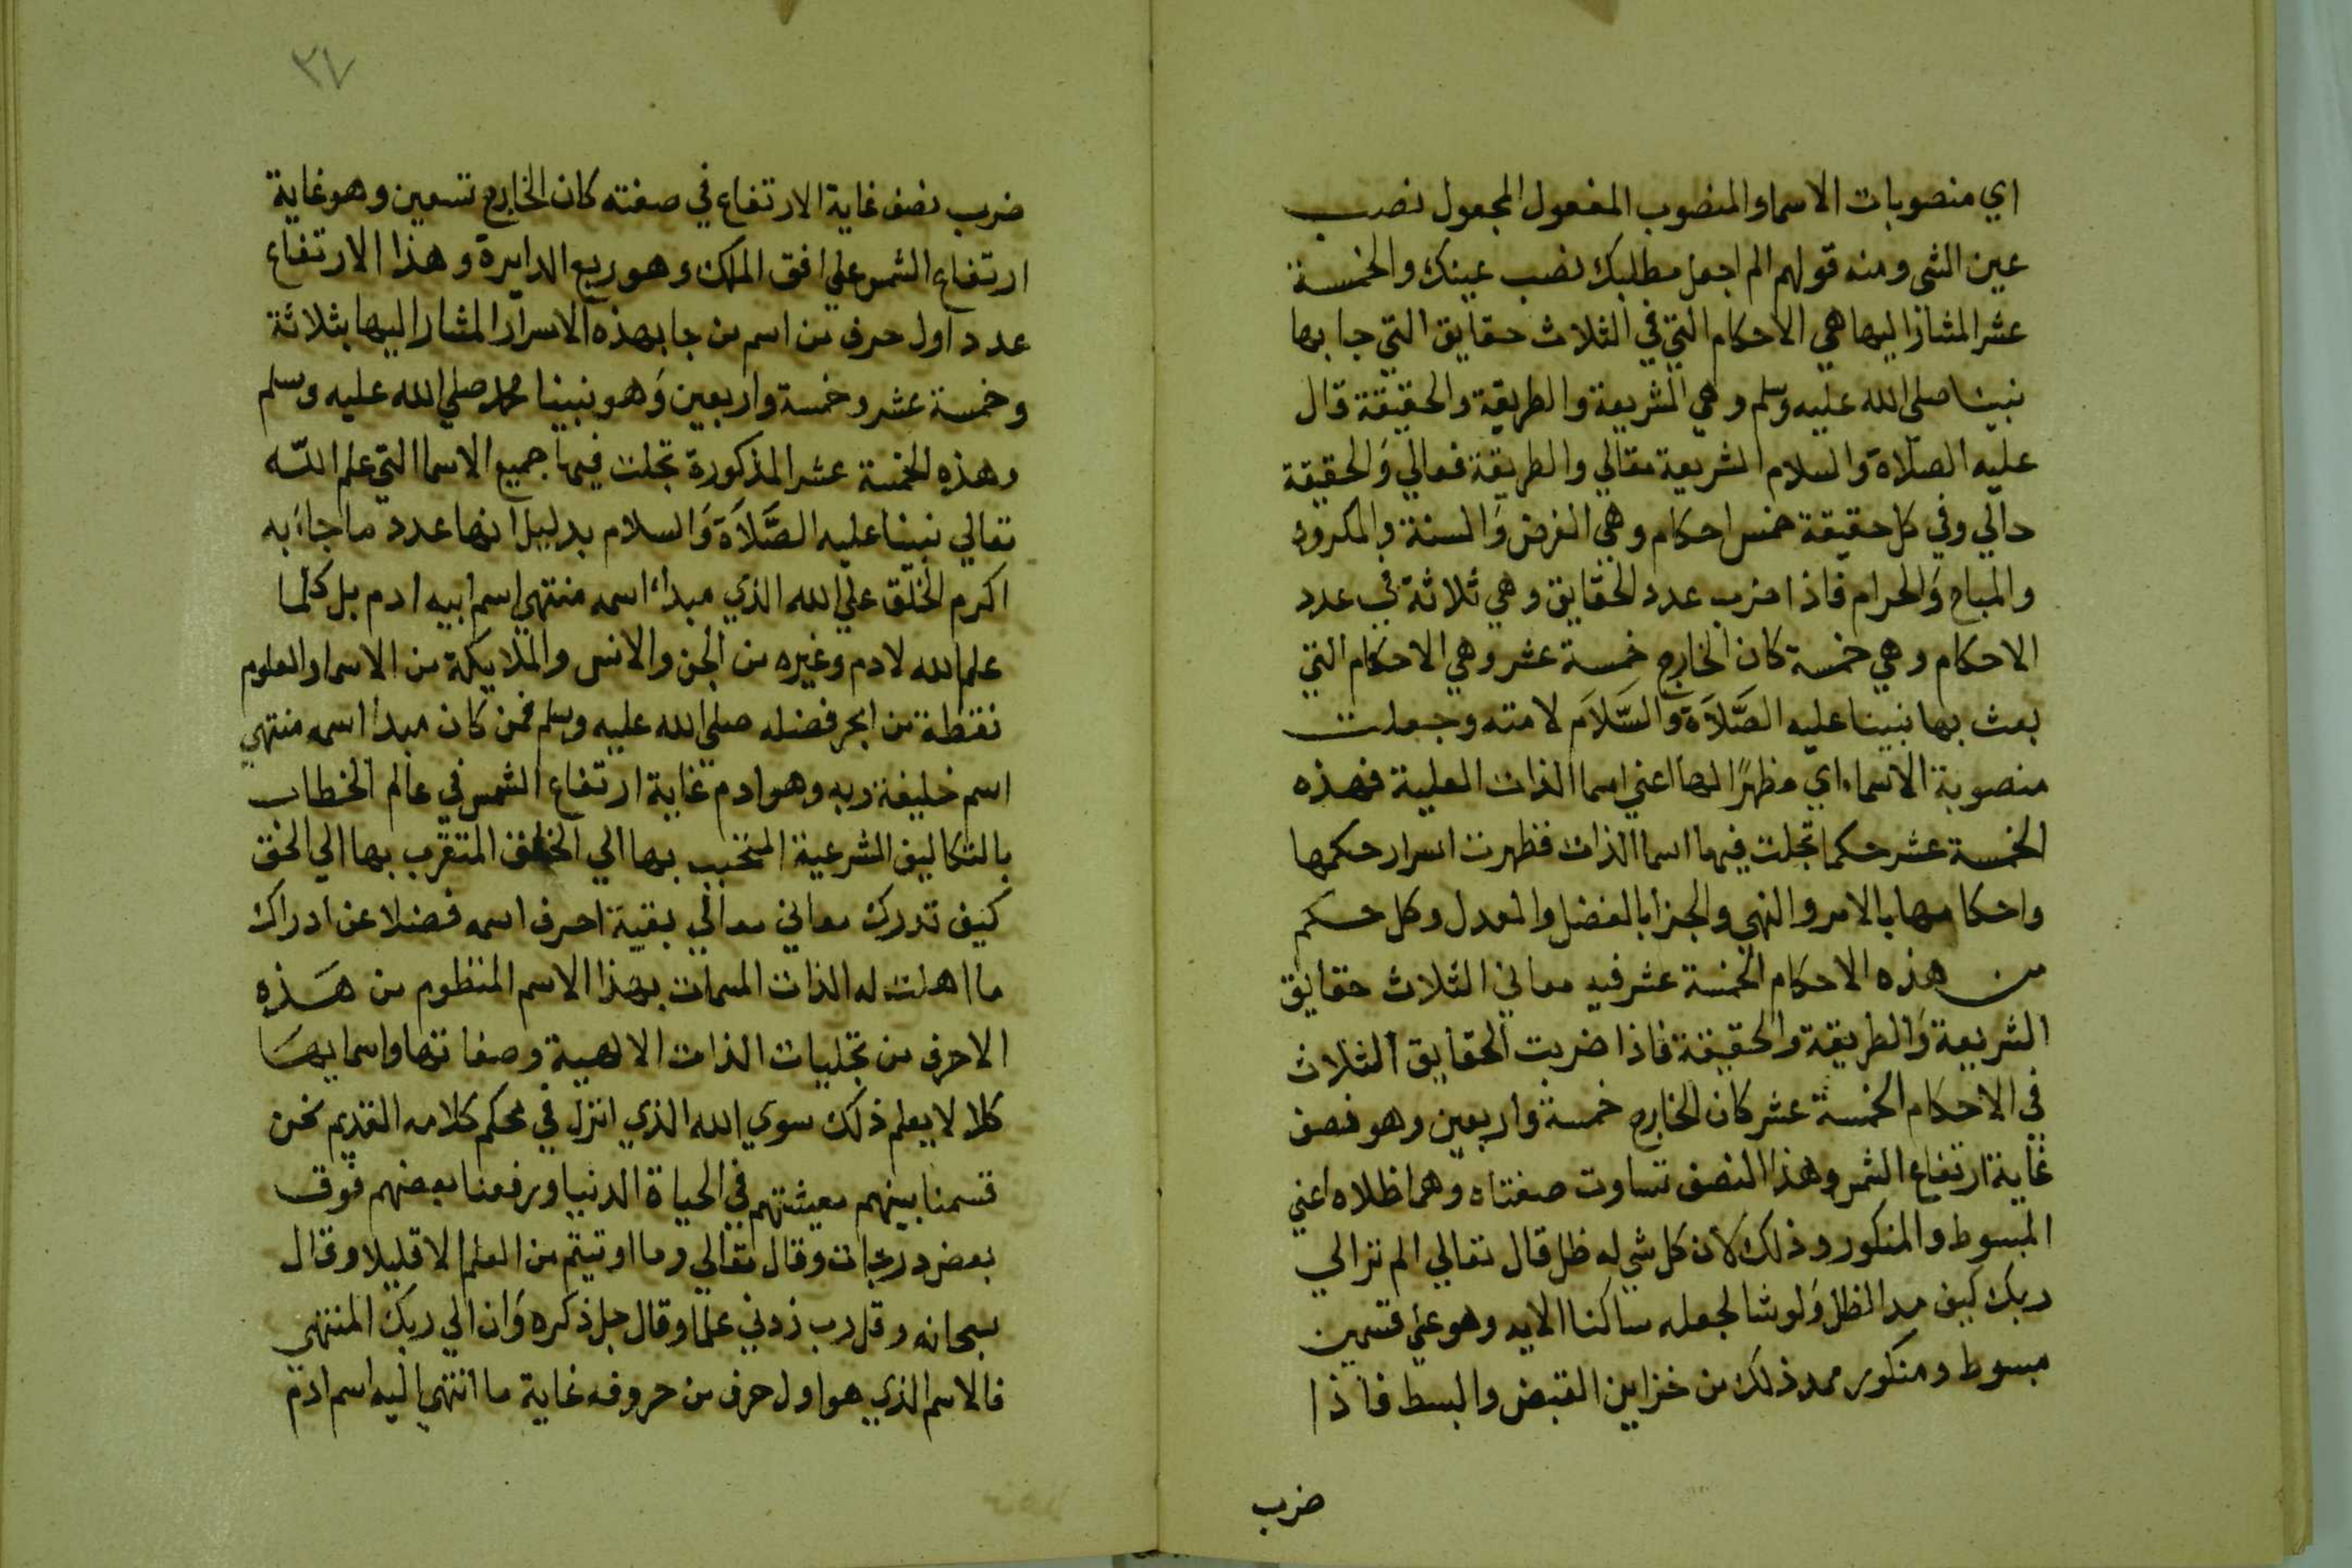 اي منصوبات الاسما والمنصوب المفعول المجعول نصب
عين الشي ومنه قولهم الم اجعل مطلبك نصب عينك والخمسة
عشر المشار اليها هي الاحكام التي في الثلاث حقايق التي جا بها
نبينا صلى الله عليه وسلم وهي الشريعة والطريقة والحقيقة قال
عليه الصلاة والسلام الشريعة مقالي والطريقة فعالي والحقيقة
حالي وفي كل حقيقة خمس احكام وهي الفرض والسنة والمكروه
والمباح والحرام فاذا ضرب عدد الحقايق وهي ثلاثة في عدد
الاحكام وهي خمسة كان الخارج خمسة عشر وهي الاحكام التي
بعث بها نبينا عليه الصَّلاَة والسَّلاَم لامته وجعلت
منصوبة الاسماء اي مظهرًا لها اعني اسما الذات العلية فهذه
الخمسة عشر حكما تجلت فيها اسما الذات فظهرت اسرار حكمها
واحكامها بالامر والنهي والجزا بالفضل والعدل وكل حكم
من هذه الاحكام الخمسة عشر فيه معاني الثلاث حقايق
الشريعة والطريقة والحقيقة فاذا ضربت الحقايق الثلاث
في الاحكام الخمسة عشر كان الخارج خمسة واربعين وهو نصف
غاية ارتفاع الشمس وهذا النصف تساوت صفتاه وهما ظلاه اعني
المبسوط والمنكور وذلك لان كل شي له ظل قال تعالي الم تر الي
ربك كيف مد الظل ولو شا لجعله ساكنا الايه وهو علي قسمين
مبسوط ومنكور ممد ذلك من خزاين القبض والبسط فاذا
ضرب
٣٧
ضرب نصف غاية الارتفاع في صفته كان الخارج تسعين وهو غاية
ارتفاع الشمس علي افق الملك وهو ربع الدايرة وهذا الارتفاع
عدد اول حرف من اسم من جا بهذه الاسرار المشار اليها بثلاثة
وخمسة عشر وخمسة واربعين وهو نبينا محمد صلي الله عليه وسلم
وهذه الخمسة عشر المذكورة تجلت فيها جميع الاسما التي علم الله
تعالي نبينا عليه الصَّلاَة وَالسلام بدليل انها عدد ما جاء به
اكرم الخلق علي الله الذي مبداء اسمه منتهي اسم ابيه ادم بل كلما
علم الله لادم وغيره من الجن والانس والملايكة من الاسما والعلوم
نقطة من ابحر فضله صلي الله عليه وسلم فمن كان مبدا اسمه منتهي
اسم خليفة ربه وهو ادم غاية ارتفاع الشمس في عالم الخطاب
بالتكاليف الشرعية المتحبب بها الي الخلق المتقرب بها الي الحق
كيف تدرك معاني معالي بقية احرف اسمه فضلا عن ادراك
ما اهلت له الذات المسمات بهذا الاسم المنظوم من هَذه
الاحرف من تجليات الذات الالهية وصفاتها واسمايها
كلا لا يعلم ذلك سوي الله الذي انزل في محكم كلامه القديم نحن
قسمنا بينهم معيشتهم في الحياة الدنيا ورفعنا بعضهم فوق
بعض درجات وقال تعالي وما اوتيتم من العلم الا قليلا وقال
سبحانه وقل رب زدني علما وقال جل ذكره وان الي ربك المنتهي
فالاسم الذي هو اول حرف من حروفه غاية ما انتهي اليه اسم ادم